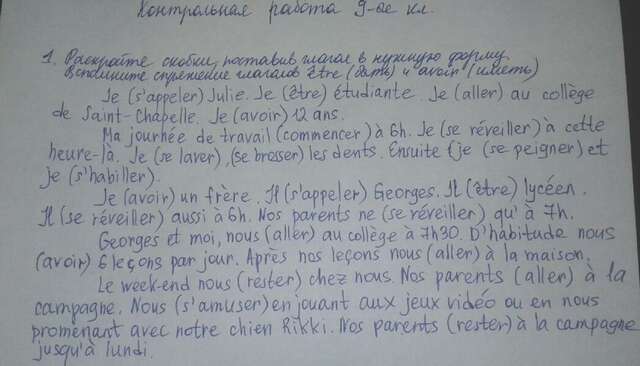 Контрольная работа 9-ое кл.
1. Раскройте скобки, поставив глагол в нужную форму.
Вспомните спряжение глаголов être (быть) и avoir (иметь)
Je (s'appeler) Julie. Je (être) étudiante. Je (aller) au collège
de Saint-Chapelle. Je (avoir) 12 ans.
Ma journée de travail (commencer) à 6h. Je (se réveiller) à cette
heure-là. Je (se laver), (se brosser) les dents. Ensuite (je (se peigner) et
je (s'habiller).
Je (avoir) un frère. Il (s'appeler) Georges. Il (être) lycéen.
Il (se réveiller) aussi à 6h. Nos parents ne (se réveiller) qu'à 7h.
Georges et moi, nous (aller) au collège à 7h30. D'habitude nous
(avoir) 6 leçons par jour. Après nos leçons nous (aller) à la maison.
Le week-end nous (rester) chez nous. Nos parents (aller) à la
campagne. Nous (s'amuser) en jouant aux jeux vidéo ou en nous
promenant avec notre chien Rikki. Nos parents (rester) à la campagne
jusqu'à lundi.